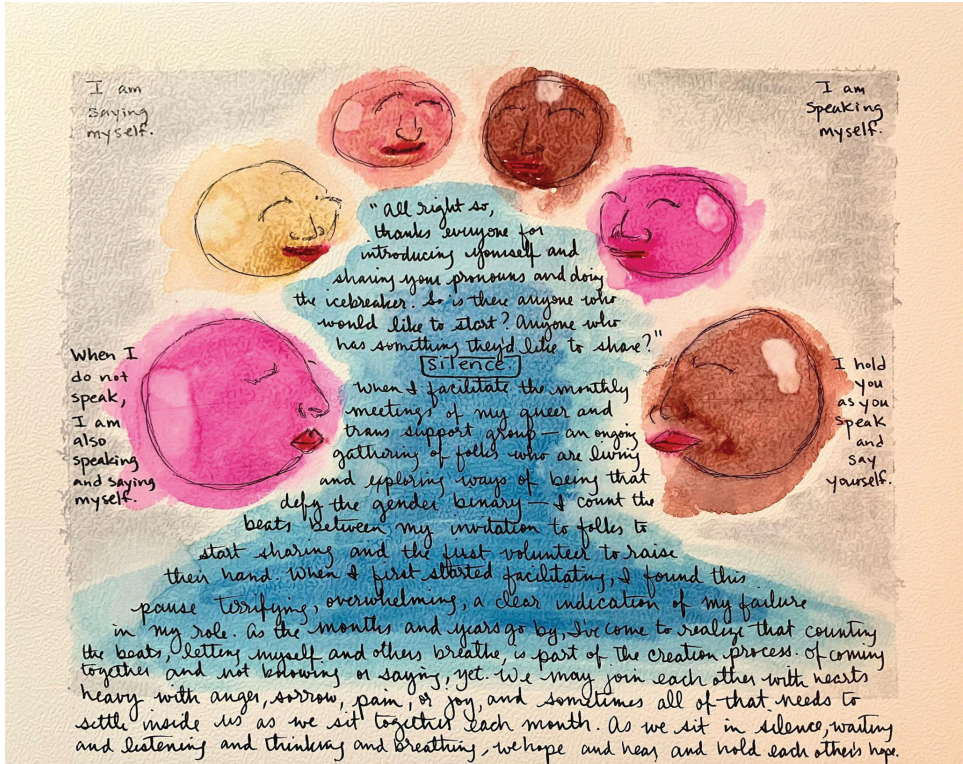 I am
saying
myself.
I am
speaking
myself.
"All right so,
thanks everyone for
introducing yourself and
sharing your pronouns and doing
the icebreaker. So is there anyone who
would like to start? Anyone who
has something they'd like to share?"
silence.
When I
do not
speak,
I am
also
speaking
and saying
myself.
I hold
you
as you
speak
and
say
yourself.
When I facilitate the monthly
meetings of my queer and
trans support group — an ongoing
gathering of folks who are living
and exploring ways of being that
defy the gender binary — I count the
beats between my invitation to folks to
start sharing and the first volunteer to raise
their hand. When I first started facilitating, I found this
pause terrifying, overwhelming, a clear indication of my failure
in my role. As the months and years go by, I've come to realize that counting
the beats, letting myself and others breathe, is part of the creation process. Of coming
together and not knowing or saying, yet. We may join each other with hearts
heavy with anger, sorrow, pain, or joy, and sometimes all of that needs to
settle inside us as we sit together each month. As we sit in silence, waiting
and listening and thinking and breathing, we hope and hear and hold each other's hope.